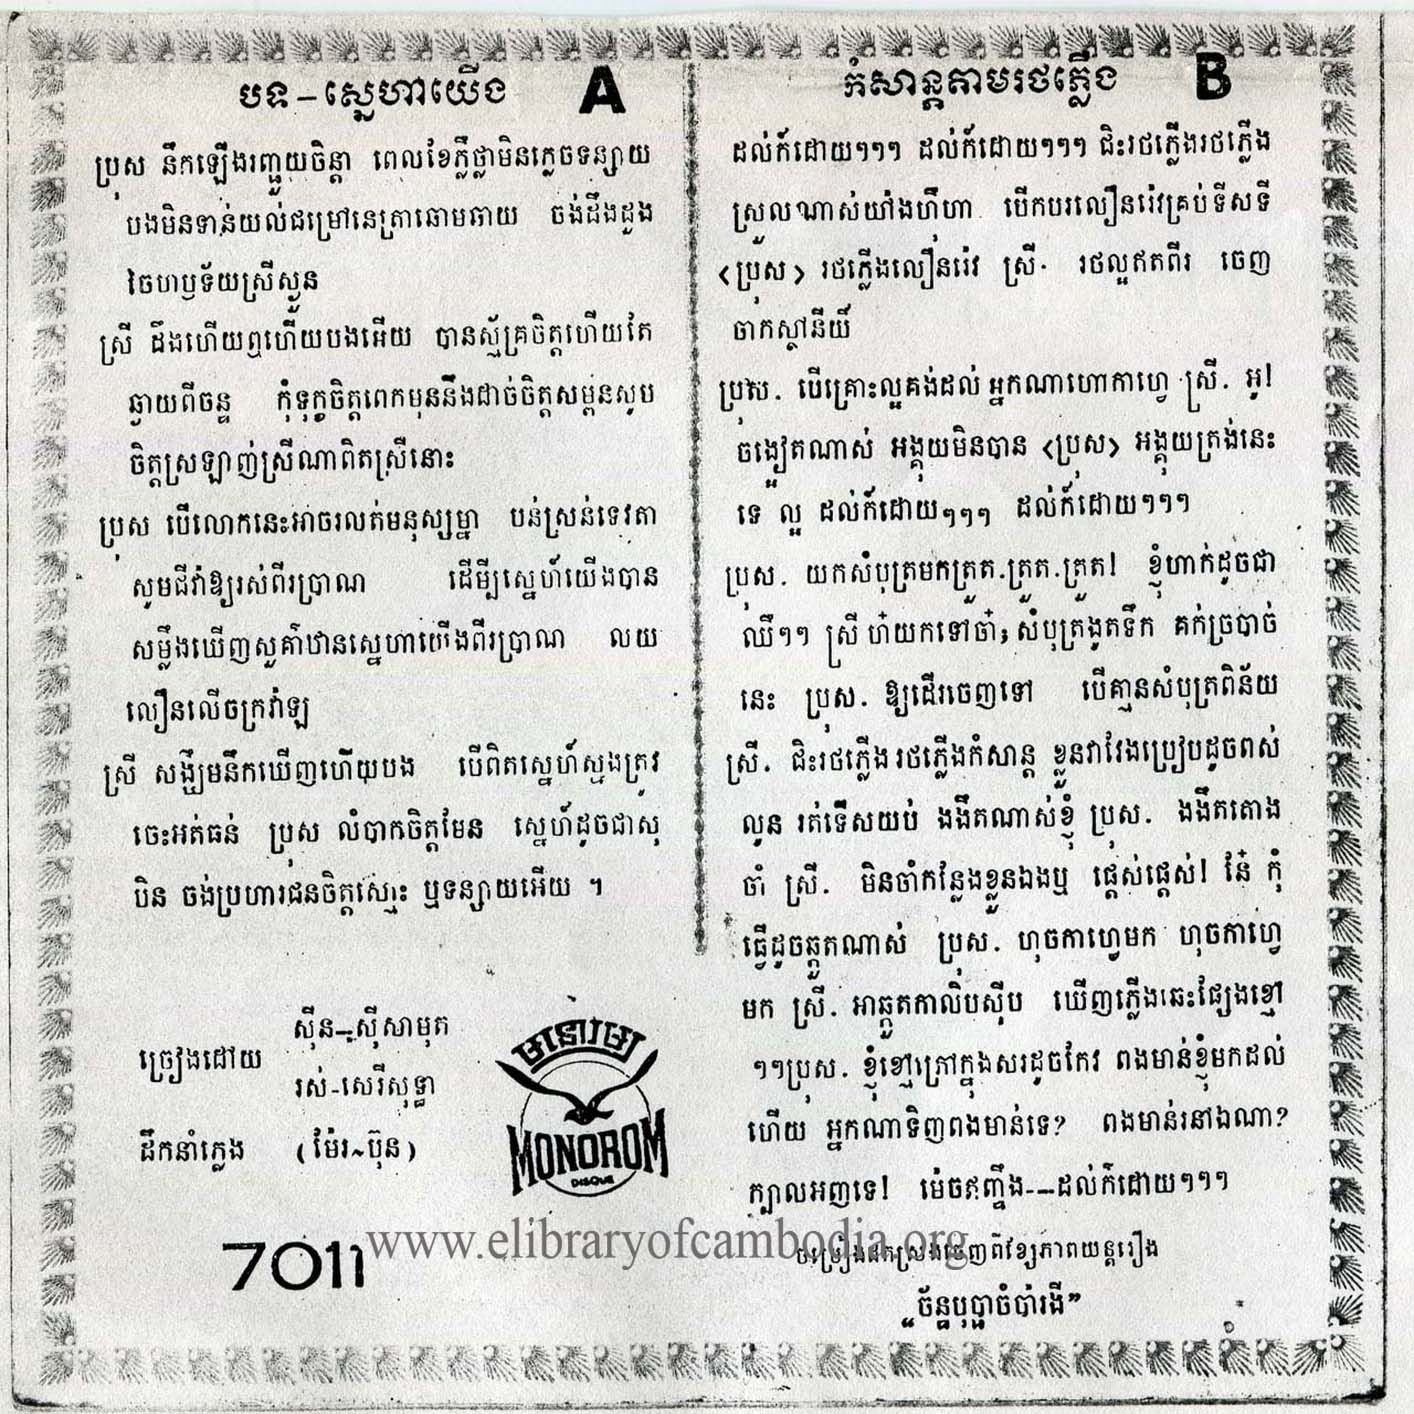 បទ – ស្នេហាយើង A
ប្រុស នឹកឡើងរញ្ជួយចិន្តា ពេលខែភ្លឺថ្លាមិនភ្លេចទន្សាយ
បងមិនទាន់យល់ជម្រៅនេត្រាឆោមឆាយ ចង់ដឹងដួង
ចៃហឫទ័យស្រីស្ងួន
ស្រី ដឹងហើយឮហើយបងអើយ បានស្ម័គ្រចិត្តហើយតែ
ឆ្ងាយពីចន្ទ កុំទុក្ខចិត្តពេកមុននឹងដាច់ចិត្តសម្ពនសូប
ចិត្តស្រឡាញ់ស្រីណាពិតស្រីនោះ
ប្រុស បើលោកនេះអាចរលត់មនុស្សម្នា បន់ស្រន់ទេវតា
សូមជីវ៉ាឱ្យរស់ពីរប្រាណ ដើម្បីស្នេហ៍យើងបាន
សម្លឹងឃើញសួគ៌ាឋានស្នេហាយើងពីរប្រាណ លយ
លឿនលើចក្រវ៉ាឡ
ស្រី សង្ឃឹមនឹកឃើញហើយបង បើពិតស្នេហ៍ស្នងត្រូវ
ចេះអត់ធន់ ប្រុស លំបាកចិត្តមែន ស្នេហ៍ដូចជាសុ
បិន ចង់ប្រហារជនចិត្តស្មោះ ឬទន្សាយអើយ ។
ច្រៀងដោយ ស៊ីន-ស៊ីសាមុត
រស់-សេរីសុទ្ធា
ដឹកនាំភ្លេង (ម៉ែរ~ប៊ុន)
មនោរម្យ
MONOROM
DISQUE
7011
កំសាន្តតាមរថភ្លើង B
ដល់ក៍ដោយៗៗៗ ដល់ក៍ដោយៗៗៗ ជិះរថភ្លើងរថភ្លើង
ស្រួលណាស់យ៉ាងហ៊ឺហា បើកបរលឿនរ៉េវគ្រប់ទីសទី
<ប្រុស> រថភ្លើងលឿនរ៉េវ ស្រី. រថល្អឥតពីរ ចេញ
ចាកស្ថានីយ៍
ប្រុស. បើគ្រោះល្អគង់ដល់ អ្នកណាហោកាហ្វេ ស្រី. អូ!
ចង្អៀតណាស់ អង្គុយមិនបាន <ប្រុស> អង្គុយត្រង់នេះ
ទេ ល្អ ដល់ក៍ដោយៗៗៗ ដល់ក៍ដោយៗៗៗ
ប្រុស. យកសំបុត្រមកត្រួត.ត្រួត.ត្រួត! ខ្ញុំហាក់ដូចជា
ឈឺៗៗ ស្រី ហ៎យកទៅចា៎; សំបុត្រងូតទឹក គក់ច្របាច់
នេះ ប្រុស. ឱ្យដើរចេញទៅ បើគ្មានសំបុត្រពិន័យ
ស្រី. ជិះរថភ្លើង រថភ្លើងកំសាន្ត ខ្លួនវាវែងប្រៀបដូចពស់
លូន រត់ទើសយប់ ងងឹតណាស់ខ្ញុំ ប្រុស. ងងឹតតោង
ចាំ ស្រី. មិនចាំកន្លែងខ្លួនឯងឬ ផ្តេសផ្តេស! នែ៎ កុំ
ធ្វើដូចឆ្កួតណាស់ ប្រុស. ហុចកាហ្វេមក ហុចកាហ្វេ
មក ស្រី. អាឆ្កួតកាលិបស៊ីប ឃើញភ្លើងឆេះផ្សែងខ្មៅ
ៗៗប្រុស. ខ្ញុំខ្មៅក្រៅក្នុងសរដូចកែវ ពងមាន់ខ្ញុំមកដល់
ហើយ អ្នកណាទិញពងមាន់ទេ? ពងមាន់រនៅឯណា?
ក្បាលអញទេ! ម៉េចឥញ្ចឹង---ដល់ក៍ដោយៗៗៗ
ចម្រៀងដកស្រង់ចេញពីខ្សែភាពយន្តរឿង
„ច័ន្ទបុប្ផាចំប៉ារងី"
www.elibraryofcambodia.org